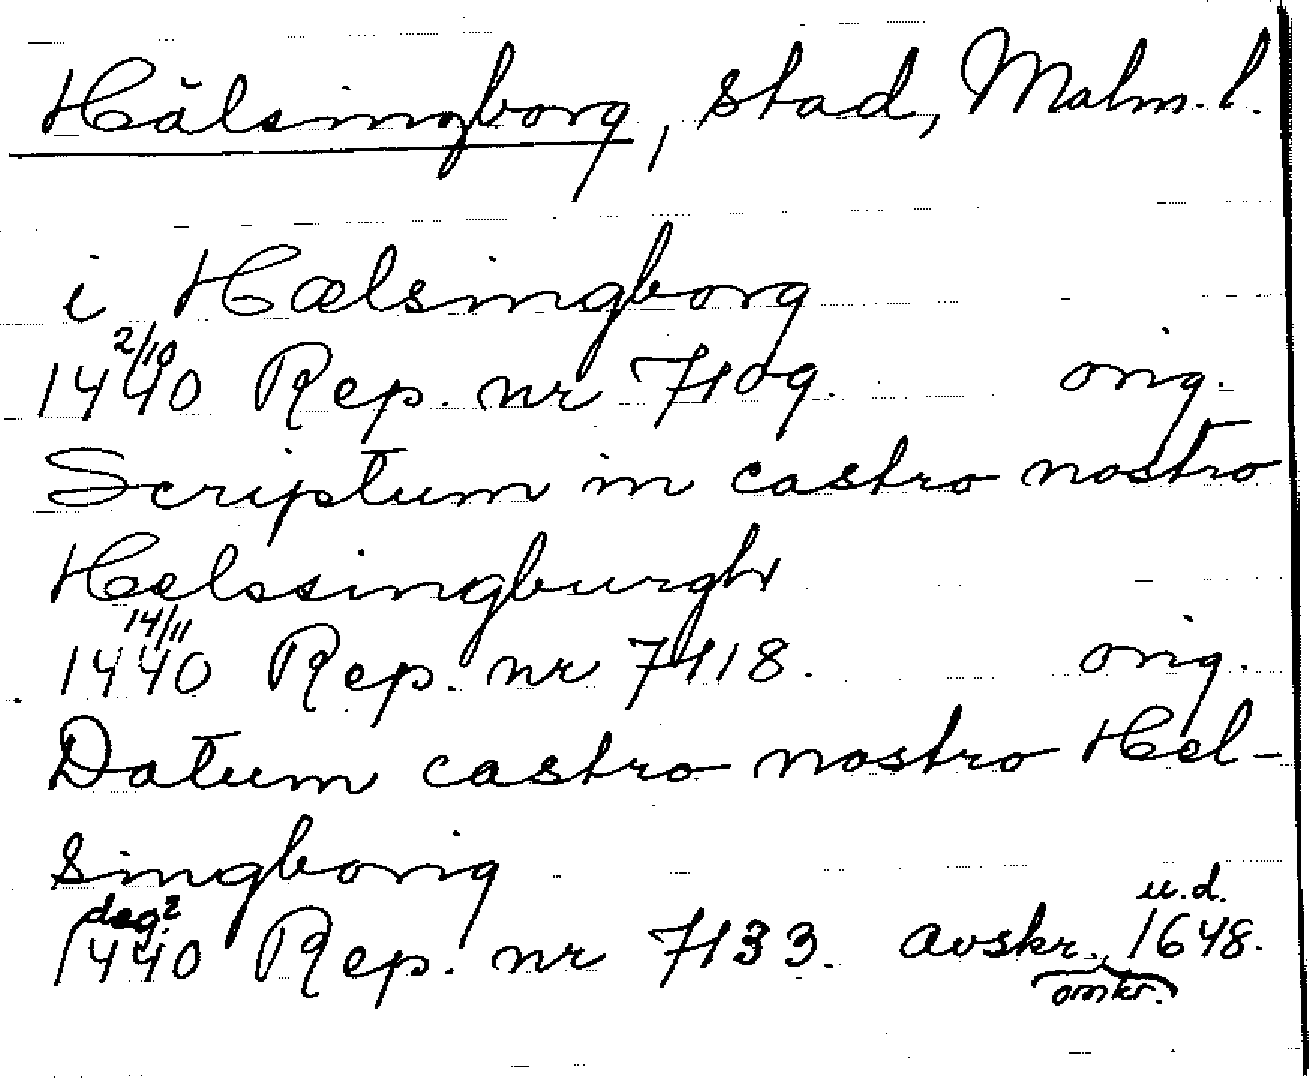 Hälsingborg, stad, Malm. l.
i Hælsingborg
2/10
1440 Rep. nr 7109. orig.
Scriptum in castro nostro
Helssingburgh
14/11
1440 Rep. nr 7118. orig.
Datum castro nostro Hel-
singborig
dag? u.d.
1440 Rep. nr 7133. avskr. 1648.
omkr.